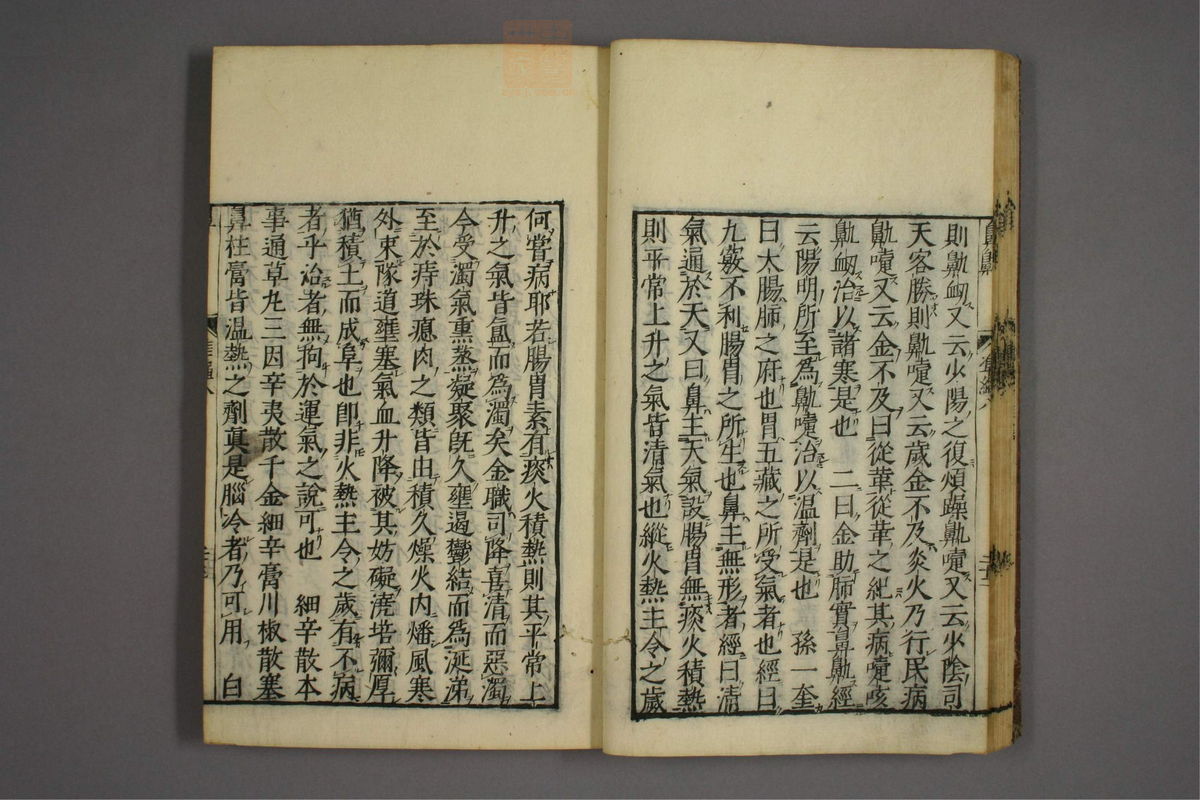 則鼽衂又云少陽之復煩躁鼽嚔又云少陰司
天客勝則鼽嚔又云歲金不及炎火乃行民病
鼽嚔又云金不及曰從革從革之紀其病嚔咳
鼽衂治以諸寒是也　二曰金助肺實鼻鼽經
云陽明所至爲鼽嚔治以温劑是也　孫一奎
曰大腸肺之府也胃五藏之所受氣者也經曰
九竅不利腸胃之所生也鼻主無形者經曰清
氣通於天又曰鼻主天氣設腸胃無痰火積熱
則平常上升之氣皆清氣也縱火熱主令之歲
何嘗病耶若腸胃素有痰火積熱則其平常上
升之氣皆氲而爲濁矣金職司降喜清而惡濁
今受濁氣熏蒸凝聚既久壅遏鬱結而爲涎涕
至於痔珠瘜肉之類皆由積久燥火内燔風寒
外束隊道壅塞氣血升降被其妨礙澆培彌厚
猶積土而成阜也即非火熱主令之歲有不病
者乎治者無狥於運氣之說可也　細辛散本
事通草丸三因辛夷散千金細辛膏川椒散塞
鼻柱膏皆温熱之劑真是腦冷者乃可用　白